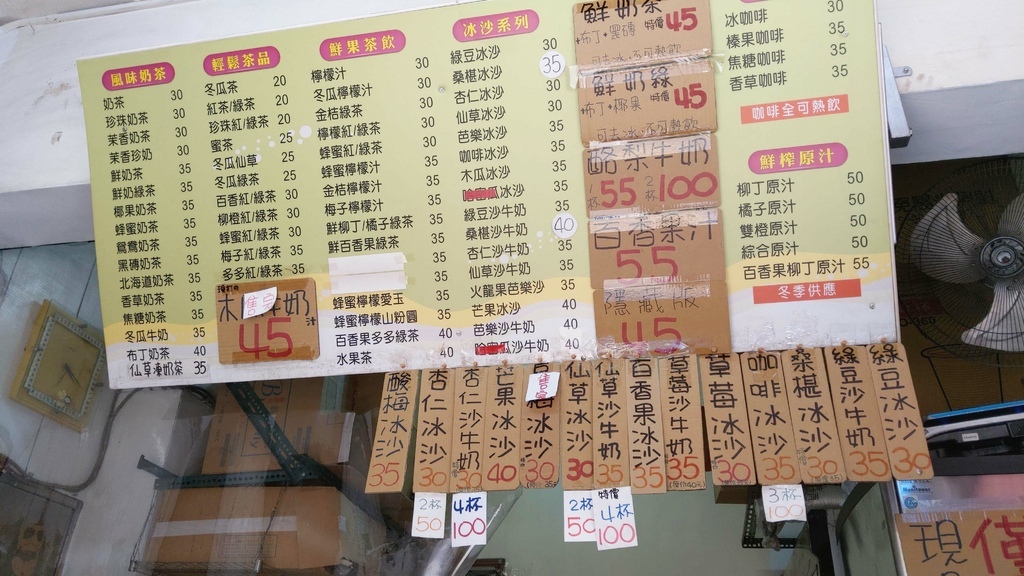 風味奶茶
奶茶 30
珍珠奶茶 30
茉香奶茶 30
茉香珍奶 30
鮮奶茶 35
鮮奶綠茶 35
椰果奶茶 35
蜂蜜奶茶 35
鴛鴦奶茶 35
黑磚奶茶 35
北海道奶茶 35
香草奶茶 35
焦糖奶茶 35
冬瓜牛奶 40
布丁奶茶 40
仙草凍奶茶 35
輕鬆茶品
冬瓜茶 20
紅茶/綠茶 20
珍珠紅/綠茶 20
蜜茶 25
冬瓜仙草 25
冬瓜綠茶 25
百香紅/綠茶 30
柳橙紅/綠茶 30
蜂蜜紅/綠茶 30
梅子紅/綠茶 30
多多紅/綠茶 35
木 鮮奶汁
售完
45
鮮果茶飲
檸檬汁 30
冬瓜檸檬汁 30
金桔綠茶 30
檸檬紅/綠茶 30
蜂蜜紅/綠茶 35
蜂蜜檸檬汁 35
金桔檸檬汁 35
梅子檸檬汁 35
鮮柳丁/橘子綠茶 35
鮮百香果綠茶 35
蜂蜜檸檬愛玉 35
蜂蜜檸檬山粉圓 35
百香果多多綠茶 35
水果茶 40
冰沙系列
綠豆冰沙 30
桑椹冰沙 35
杏仁冰沙 30
仙草冰沙 30
芭樂冰沙 35
咖啡冰沙 35
木瓜冰沙 35
哈密瓜冰沙 35
綠豆沙牛奶 35
桑椹沙牛奶 40
杏仁沙牛奶 35
仙草沙牛奶 35
火龍果芭樂沙 35
芒果冰沙 40
芭樂沙牛奶 40
哈密瓜沙牛奶 40
鮮奶茶
+布丁+黑磚 特價45
可去冰.不可熱飲
鮮奶綠
+布丁+椰果 特價45
可去冰.不可熱飲
酪梨牛奶
1杯55 2杯100
百香果汁
55
隱藏版
45
冰咖啡 35
榛果咖啡 35
焦糖咖啡 35
香草咖啡 35
咖啡全可熱飲
鮮榨原汁
柳丁原汁 50
橘子原汁 50
雙橙原汁 50
綜合原汁 50
百香果柳丁原汁 55
冬季供應
酸梅冰沙 35
杏仁冰沙 30
杏仁沙牛奶 30
芒果冰沙 40
冰沙 30
仙草冰沙 30
仙草沙牛奶 35
百香果冰沙 35
草莓沙牛奶 35
草莓冰沙 30
咖啡冰沙 35
桑椹冰沙 30
綠豆沙牛奶 35
綠豆冰沙 30
2杯 50
4杯 100
2杯 50
特價 4杯 100
3杯 100
現
僅